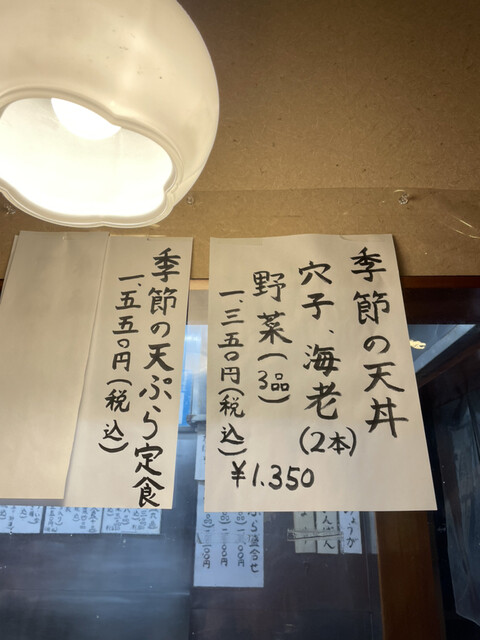 季節の天丼
穴子、海老(2本)
野菜(3品)
一、三五〇円(税込)
¥1.350
季節の天ぷら定食
一、五五〇円(税込)